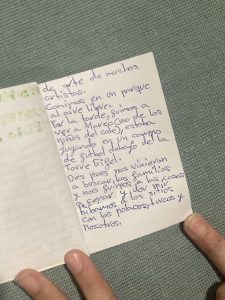 de arte de muchos
artistas.
Comimos en un parque
al aire libre.
Por la tarde, fuimos a
ver a Marco (uno de los
niños del cole), estaba
jugando en un campo
de futbol debajo de la
Torre Eifel.
Des pues nos vinieron
a buscar las familias
y nos fuimos a las casas
a cenar y dor mir
hibamos a los sitios
con los polacos, turcos y
nosotros.